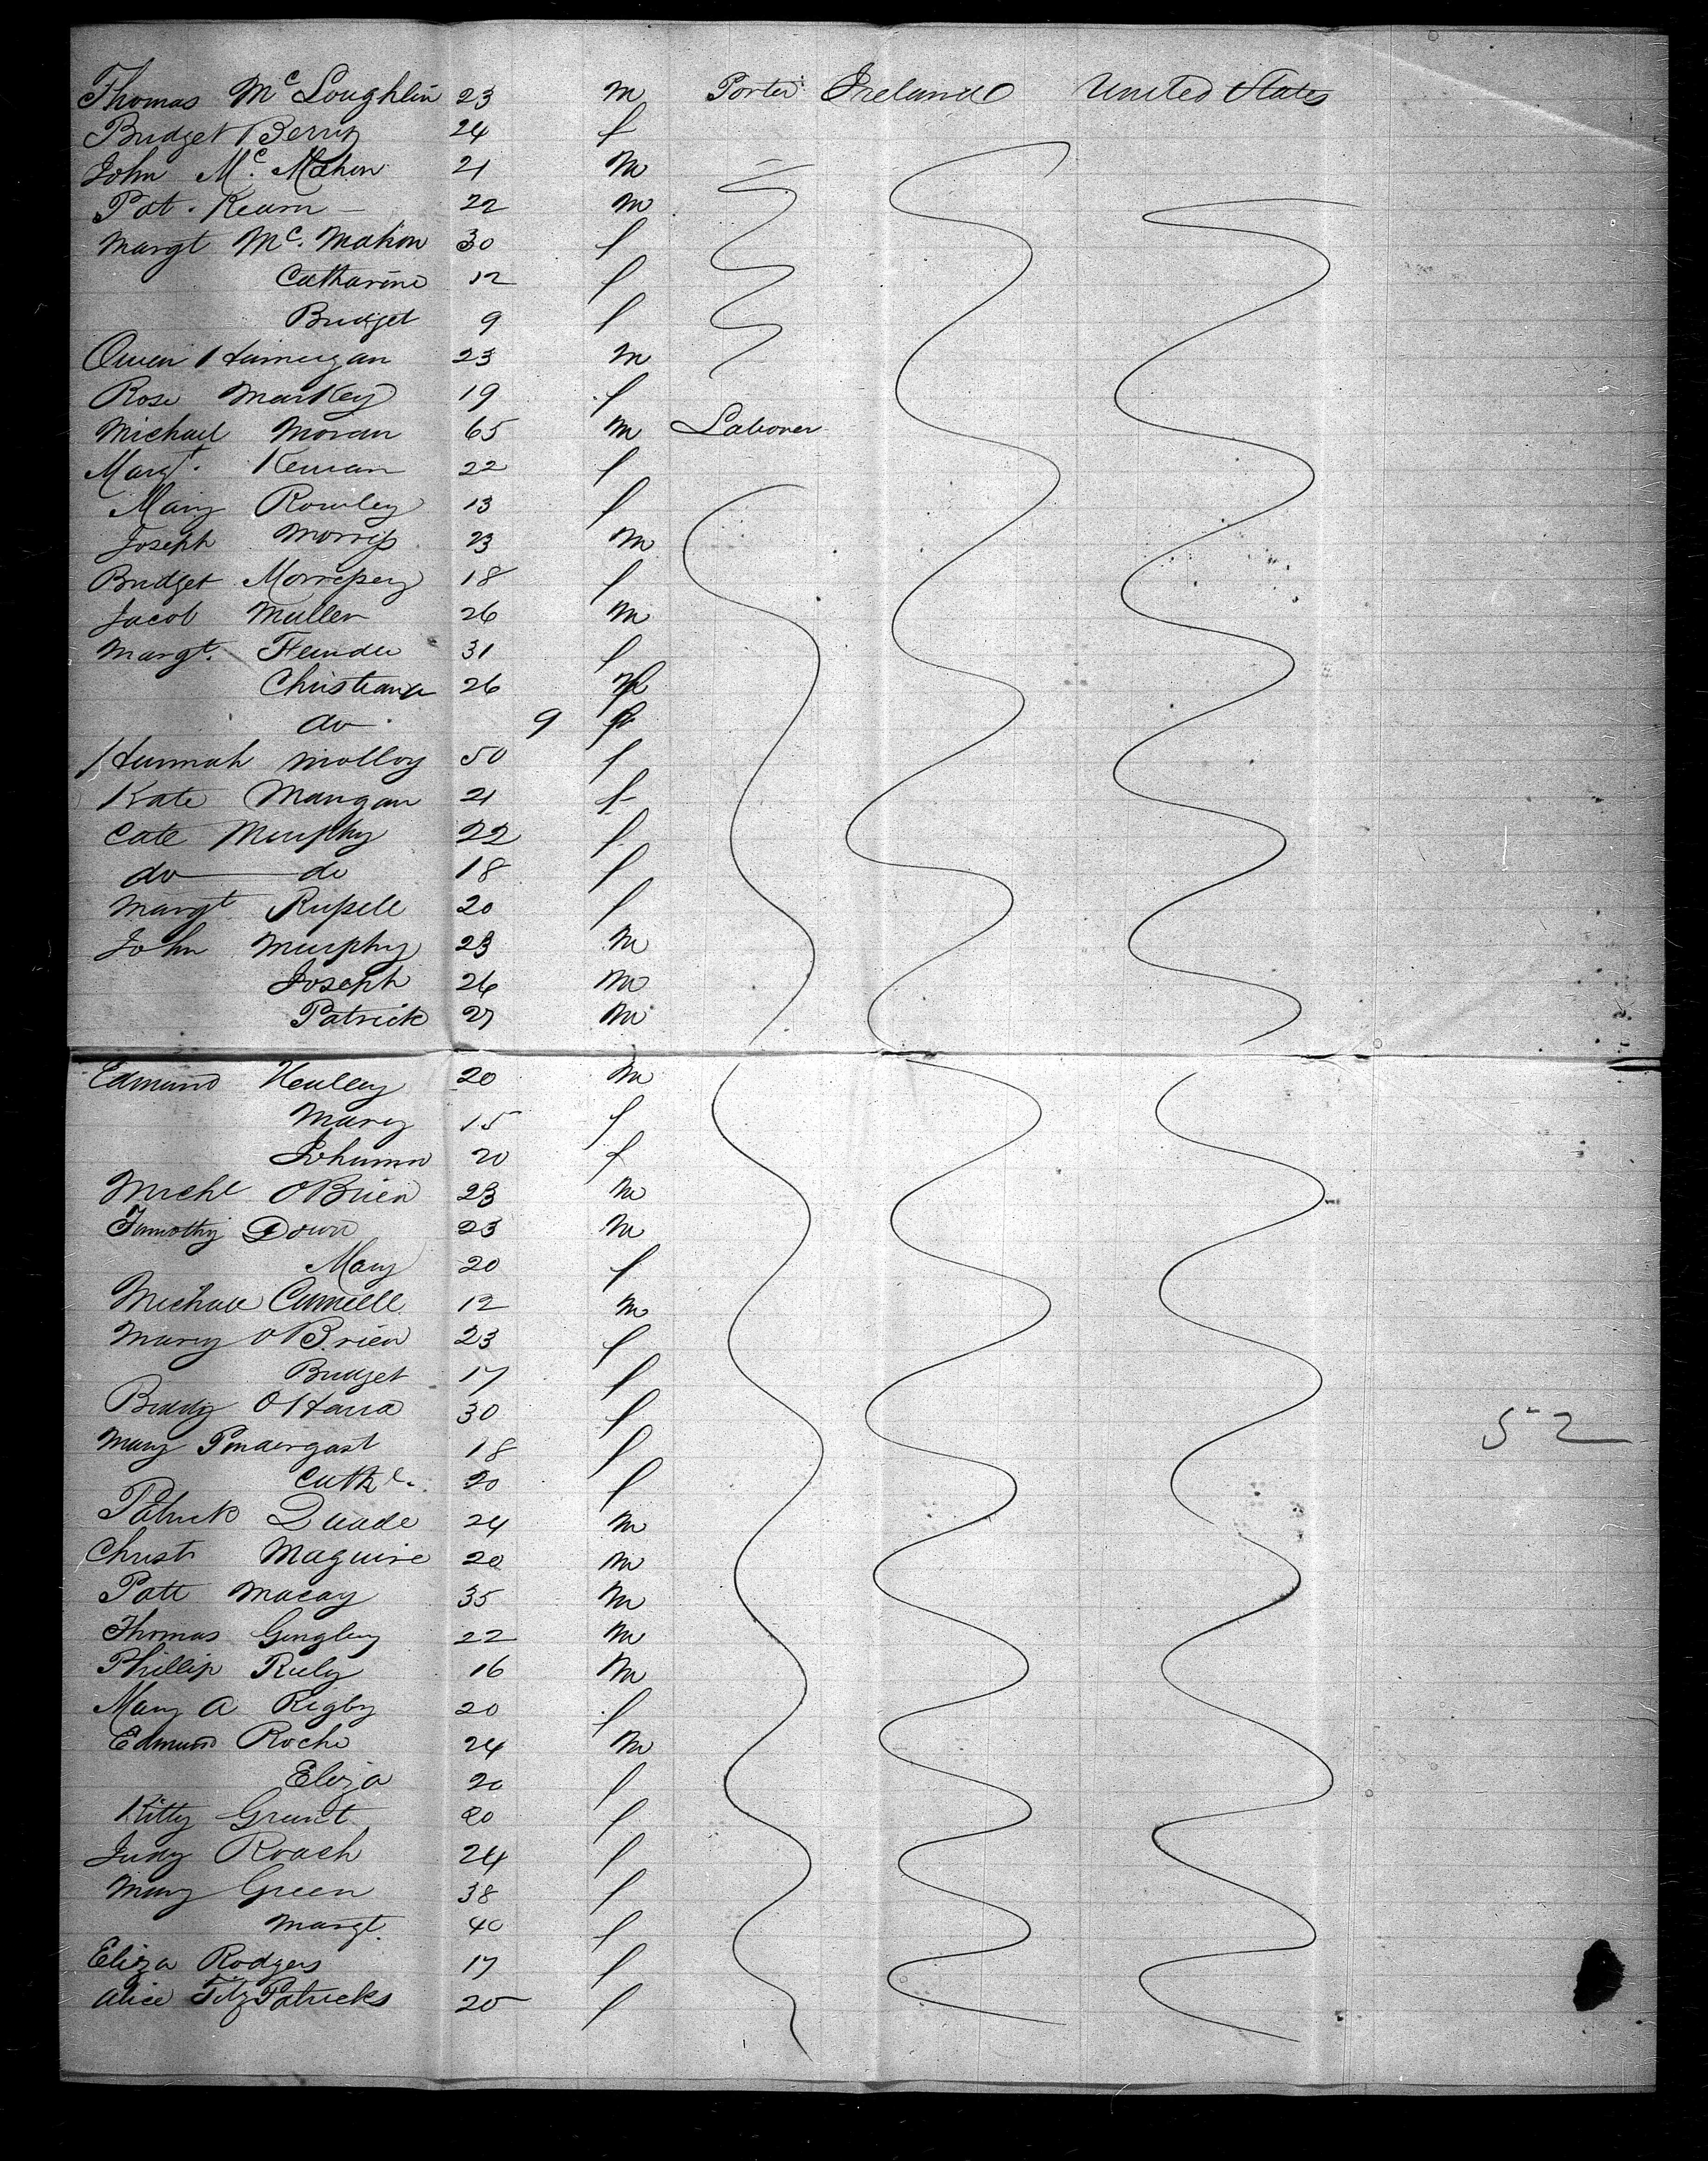 Thomas McLoughlin 23 m Porter Ireland United States
Bridget Berry 24 f
John Mc. Mahon 21 m
Pat. Kearn 22 m
Margt Mc. Mahon 30 f
Catharine 12 f
Bridget 9 f
Owen 23 m
Rose Markey 19 f
Michael Moran 65 m Laborer
Margt. Kernan 22 f
Mary Rowley 13 f
Joseph Morris 23 m
Bridget Morrissey 18 f
Jacob Muller 26 m
Margt. 31 f
Christiana 26 f
do 9 f
Hannah Molloy 50 f
Kate Mangan 21 f
Cate Murphy 22 f
do do 18 f
Margt Russell 20 f
John Murphy 23 m
Joseph 26 m
Patrick 27 m
Edmund Healey 20 m
Mary 15 f
Johanna 20 f
Michl OBrien 23 m
Timothy Down 23 m
Mary 20 f
Michael 12 m
Mary OBrien 23 f
Bridget 17 f
Biddy OHara 30 f
Mary Pendergast 18 f
Cathe. 20 f
Patrick Quade 24 m
Christ Maguire 20 m
Patt Macay 35 m
Thomas 22 m
52
Phillip Riely 16 m
Mary A Rigby 20 f
Edmund Roche 24 m
Eliza 20 f
Kitty Grant 20 f
Judy Roach 24 f
Mary Green 38 f
Margt. 40 f
Eliza Rodgers 17 f
Alice FitzPatricks 20 f